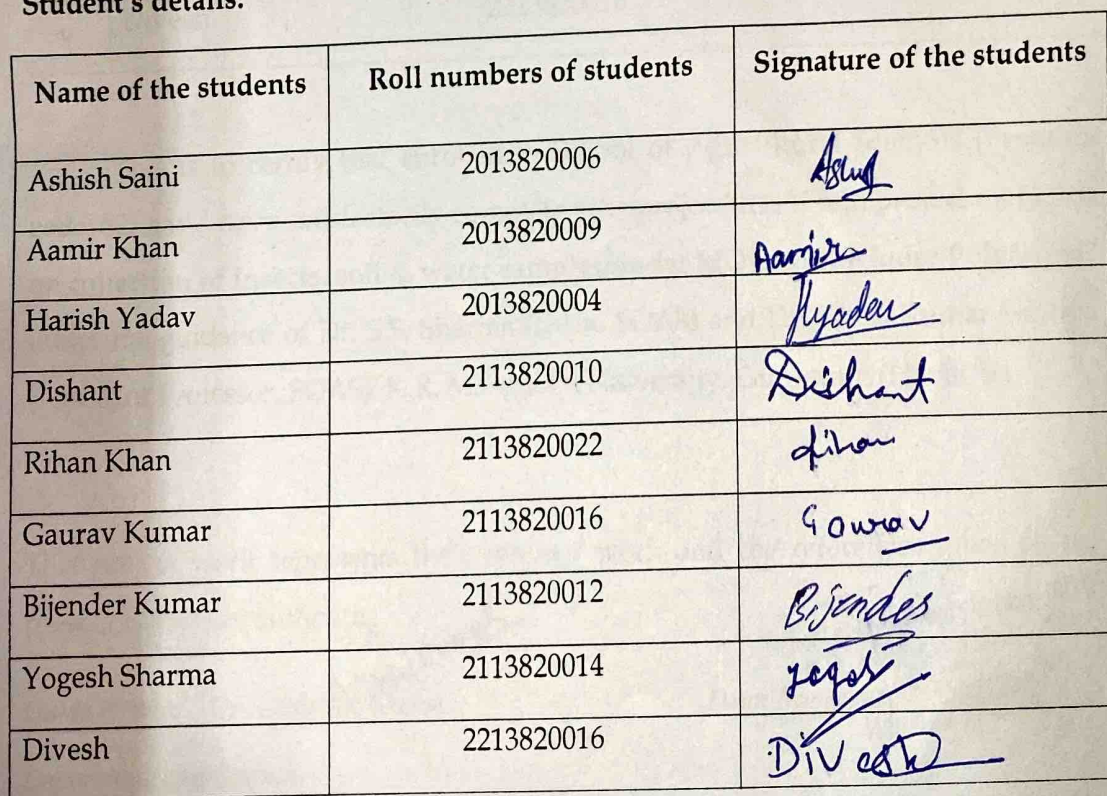 Student's details:
Name of the students Roll numbers of students Signature of the students
Ashish Saini 2013820006
Aamir Khan 2013820009 Aamir
Harish Yadav 2013820004 Hyadav
Dishant 2113820010 Dishant
Rihan Khan 2113820022 Rihan
Gaurav Kumar 2113820016 Gaurav
Bijender Kumar 2113820012 Bijender
Yogesh Sharma 2113820014
Divesh 2213820016 Divesh